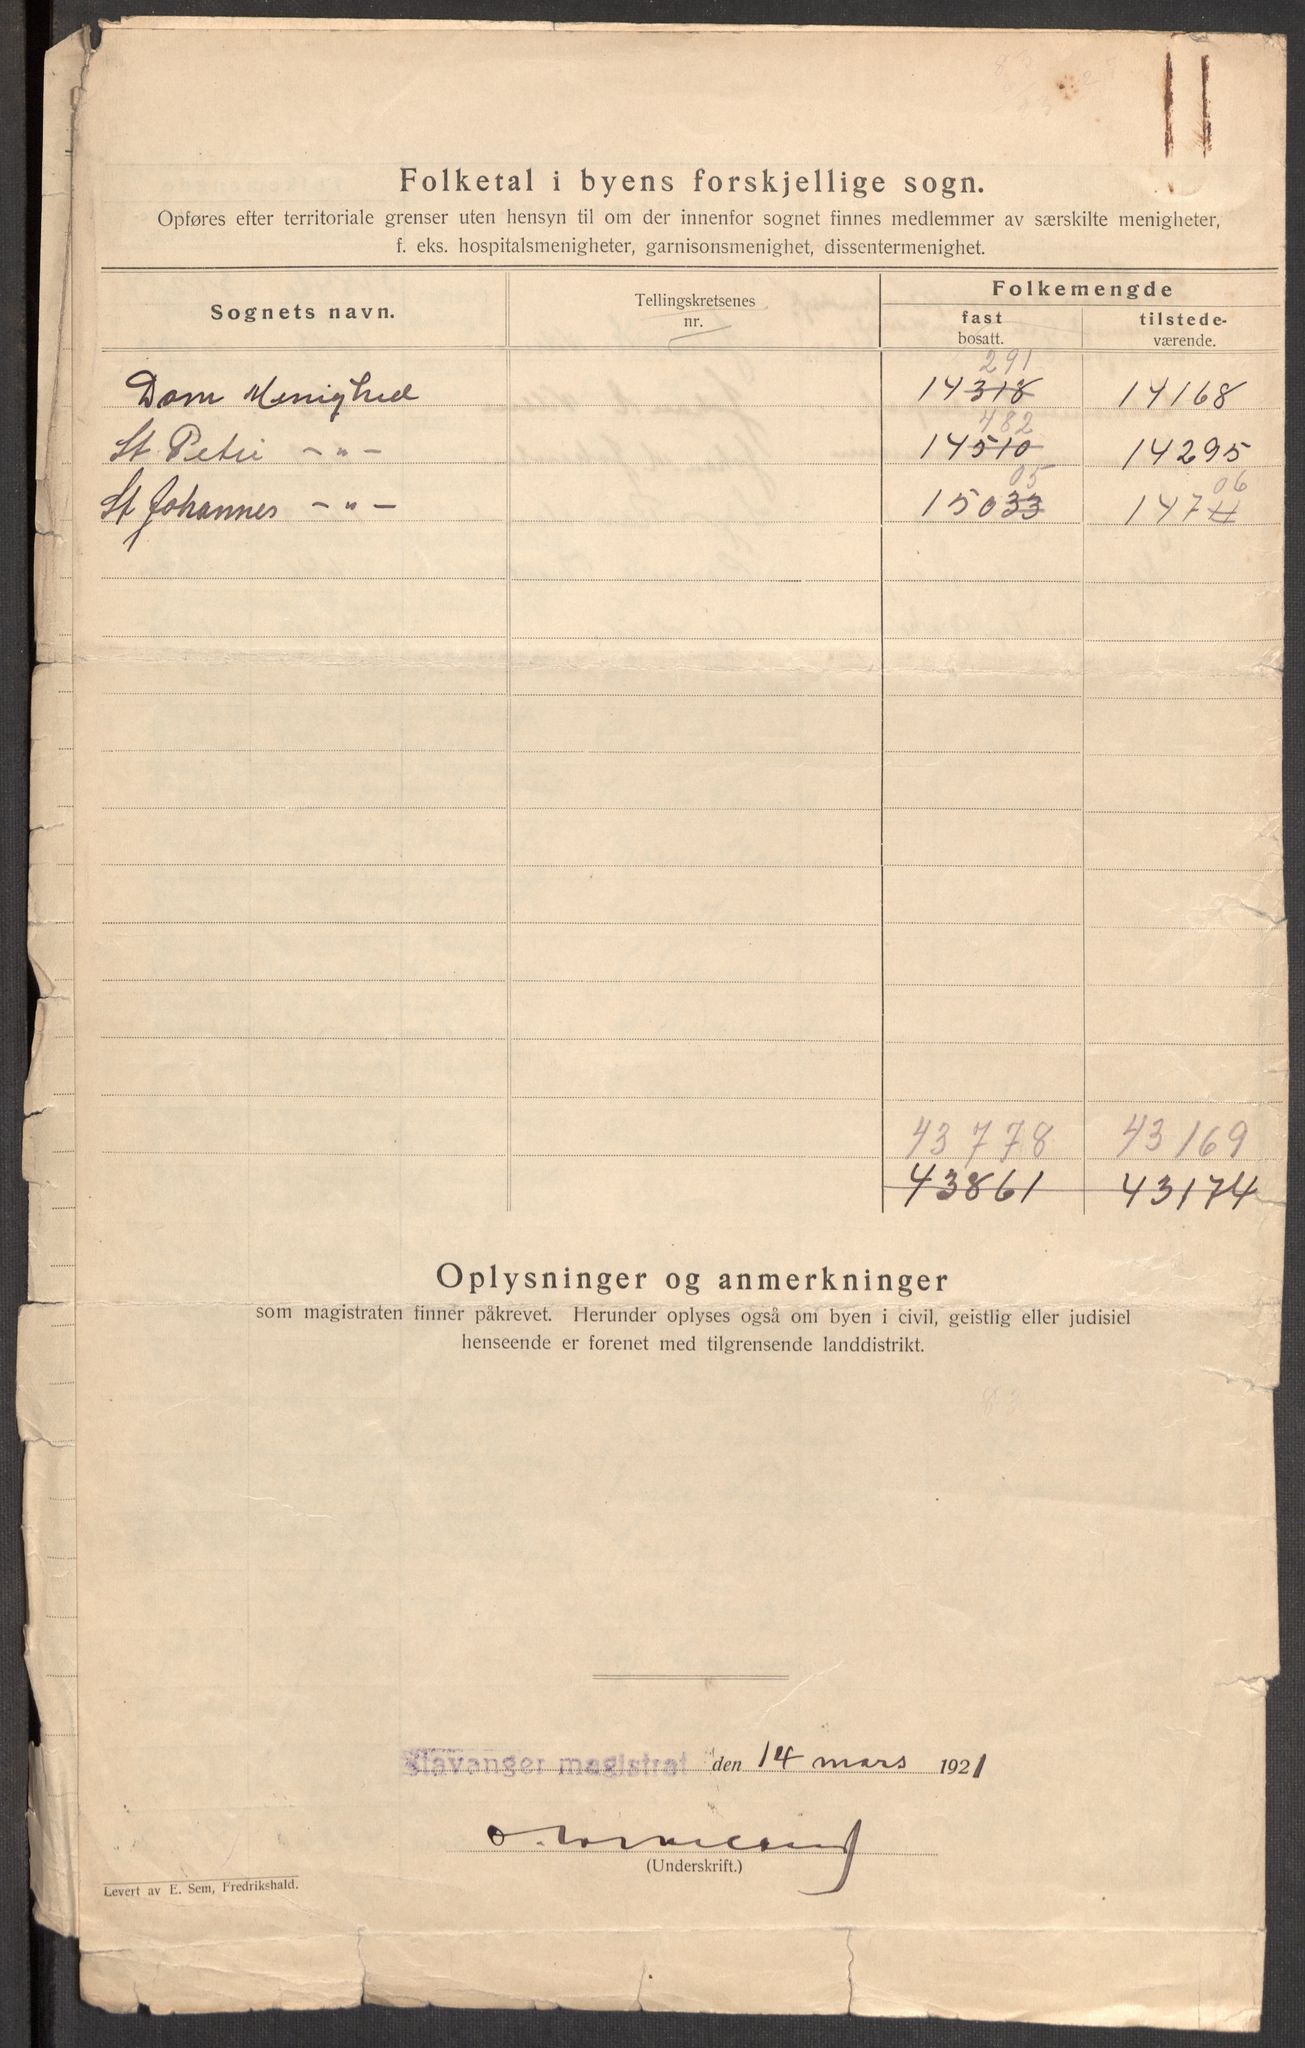 Folketal i byens forskjellige sogn.
Opføres efter territoriale grenser uten hensyn til om der innenfor sognet finnes medlemmer av særskilte menigheter,
f. eks. hospitalsmenigheter, garnisonsmenighet, dissentermenighet.
Sognets navn. Tellingskretsenes nr. Folkemengde
fast bosatt. tilstede-værende.
291
Dom Menighed 14318 14168
482
St Petri -"- 14510 14295
05 06
St Johannes -"- 15033 14711
43778 43169
43861 43174
Oplysninger og anmerkninger
som magistraten finner påkrevet. Herunder oplyses også om byen i civil, geistlig eller judisiel
henseende er forenet med tilgrensende landdistrikt.
Stavanger magistrat den 14 mars 1921
(Underskrift.)
Levert av E. Sem, Fredrikshald.